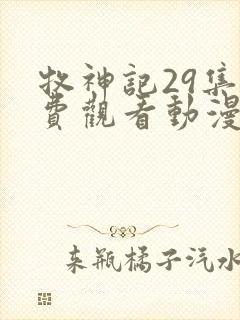 牧神記29集
費觀看動漫
来瓶橘子汽水